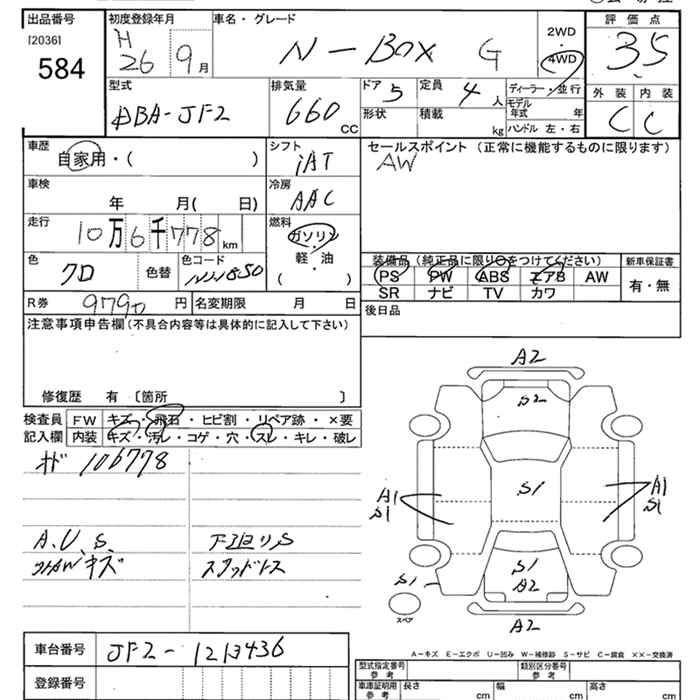 出品番号
[2036]
584
初度登録年月
H
26 9月
車名・グレード
N-BOX G
2WD
4WD
評価点
3.5
外装 内装
C C
型式
DBA-JF2
排気量
660 CC
ドア 5
定員 4人
形状
積載 kg
ディーラー・並行
モデル年式 年
ハンドル 左・右
車歴
自家用・( )
シフト
iAT
セールスポイント(正常に機能するものに限ります)
AW
車検
年 月( 日)
冷房
AAC
走行
10万6千778km
燃料
ガソリン
軽・油
( )
色
クロ
色替
色コード
装備品(純正品に限り○をつけてください)
PS PW ABS エアB AW
SR ナビ TV カワ
新車保証書
有・無
R券 9790円
名変期限 月 日
後日品
注意事項申告欄(不具合内容等は具体的に記入して下さい)
修復歴 有 [箇所 ]
検査員記入欄
FW キズ・飛石・ヒビ割・リペア跡・×要
内装 キズ・汚レ・コゲ・穴・スレ・キレ・破レ
オド 106778
A.U.S.
下回りS
スタッドレス
A2
S2
S1
A1
S1
A1
S1
S1
A2
S1
A2
スペア
A-キズ E-エクボ U-凹み W-補修跡 S-サビ C-腐食 ××-交換済
車台番号
JF2-1213436
登録番号
型式指定番号
参考
類別区分番号
参考
車庫証明用
参考
長さ cm
幅 cm
高さ cm